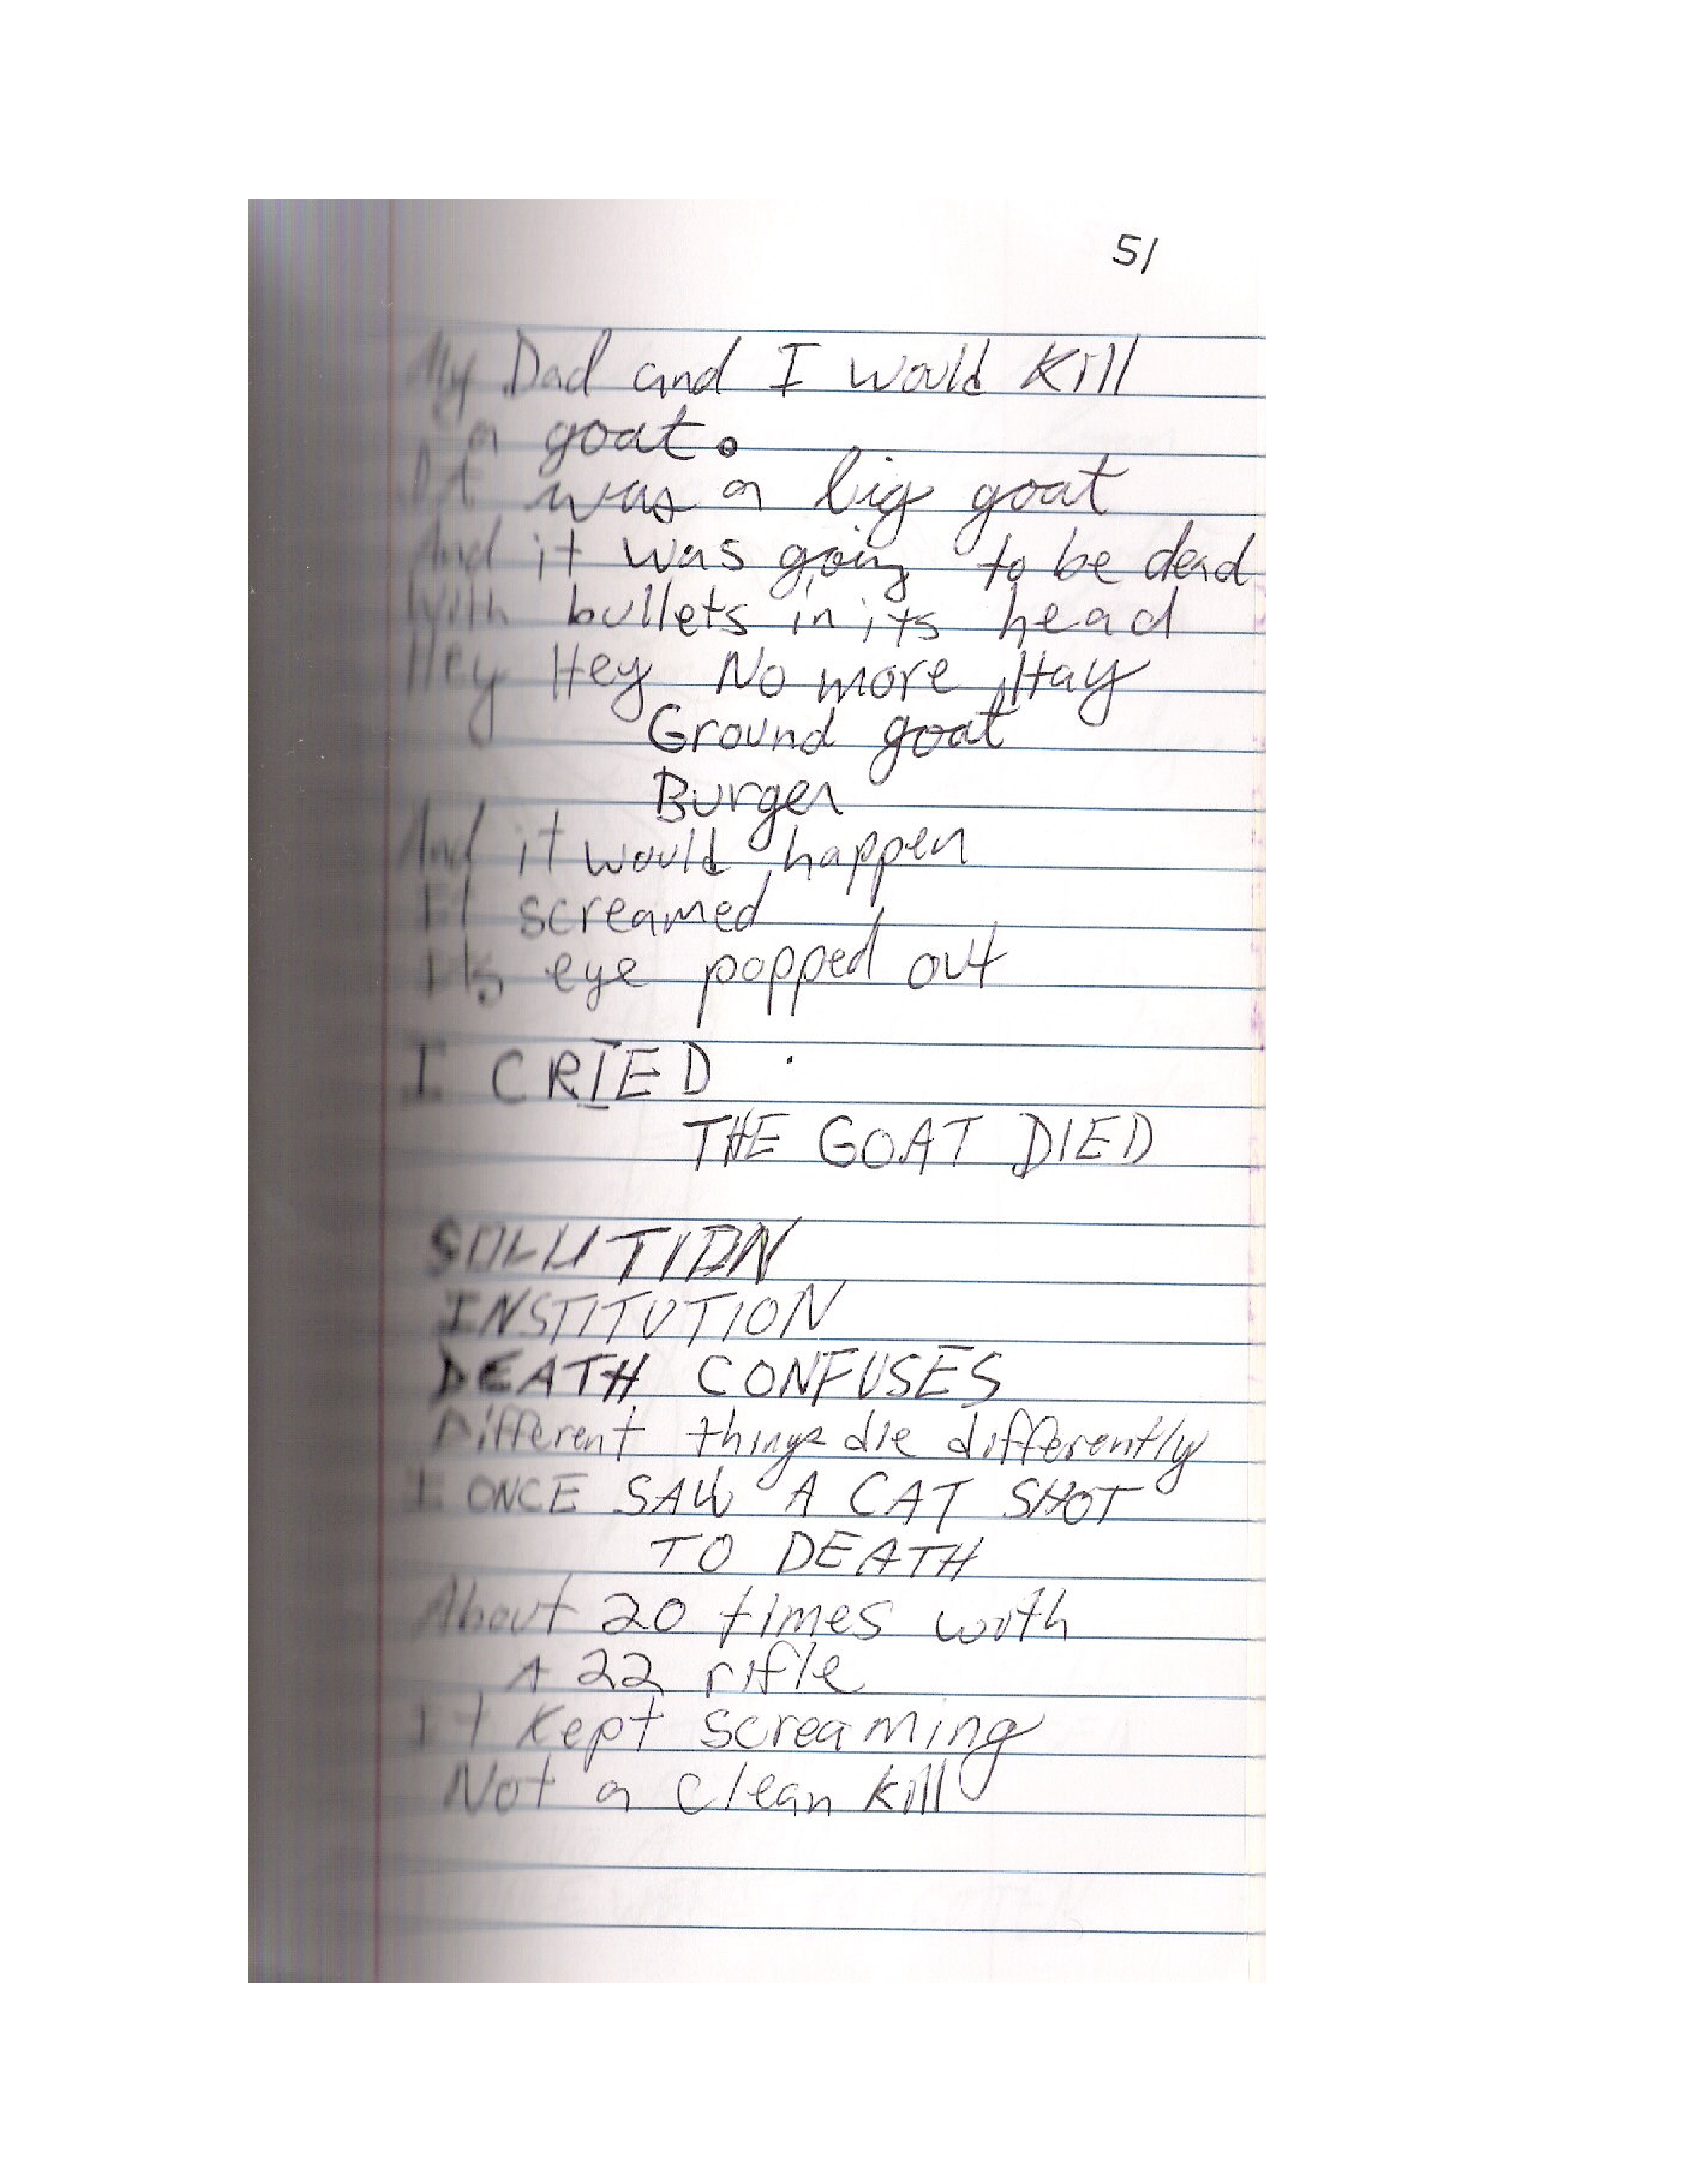 51
My Dad and I would Kill
a goat.
It was a big goat
And it was going to be dead
With bullets in its head
Hey Hey No more Hay
Ground goat
Burger
And it would happen
It screamed
Its eye popped out
I CRIED
THE GOAT DIED
SOLUTION
INSTITUTION
DEATH CONFUSES
Different things die differently
I ONCE SAW A CAT SHOT
TO DEATH
About 20 times with
A 22 rifle
It Kept screaming
Not a clean kill